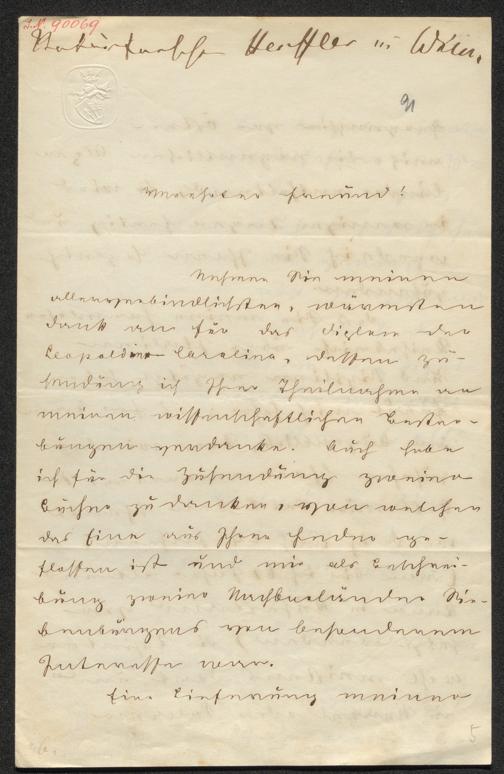 I.N. 90069
Naturforscher Heuffler in Wien.
91
Verehrter Freund!
Nehmen Sie meinen
allerverbindlichsten, wärmsten
Dank an für das Diplom der
Leopoldino Carolina, dessen Zu-
sendung ich Ihrer Theilnahme an
meinen wissenschaftlichen Bestre-
bungen verdanke. Auch habe
ich für die Zusendung zweier
Bücher zu danken, von welchen
das Eine aus Ihrer Feder ge-
flossen ist und mir als Beschrei-
bung zweier Nachbarländer Sie-
benbürgens von besonderem
Interesse war.
Eine Lieferung meiner
5